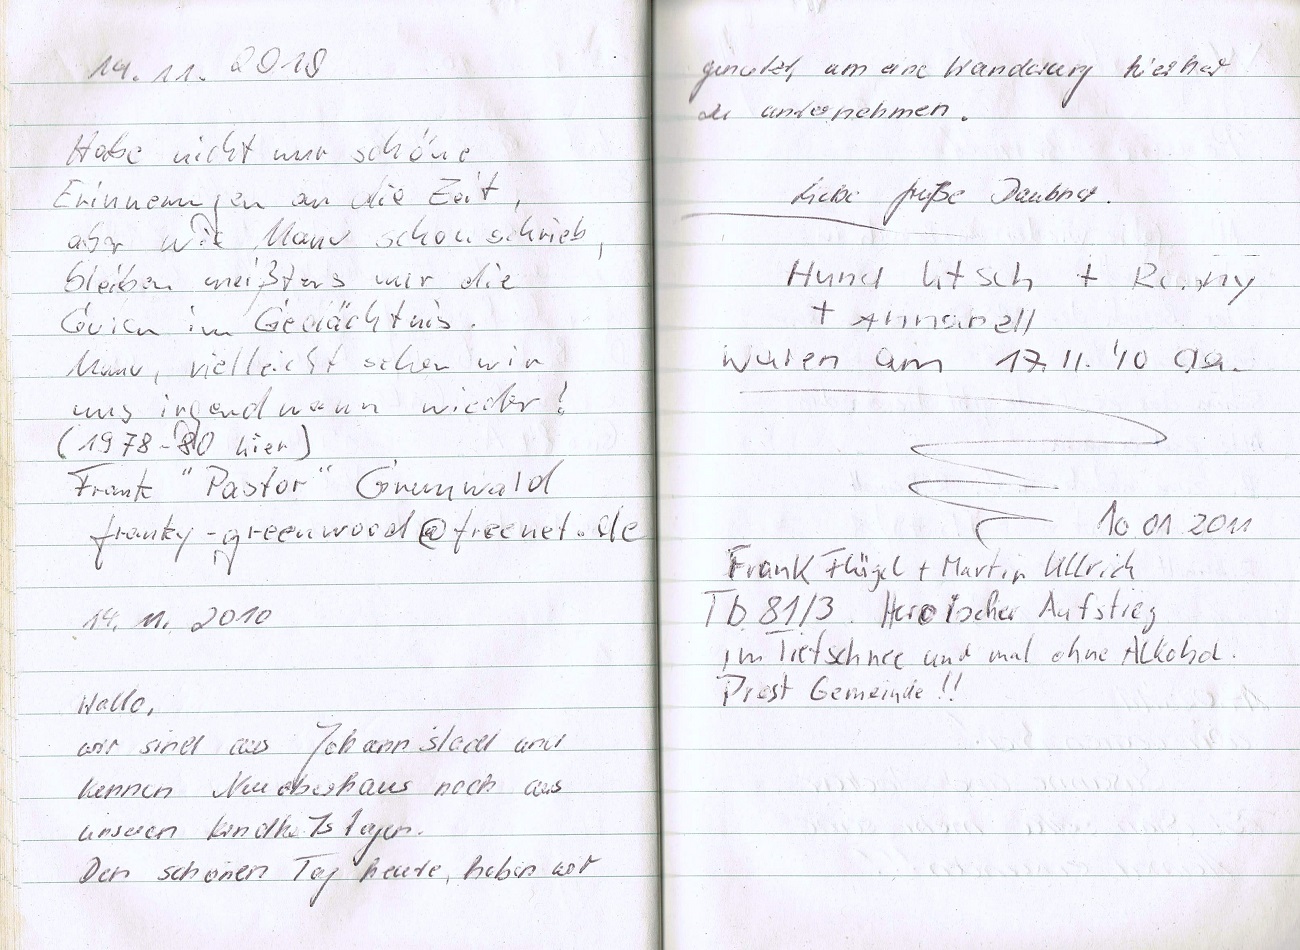 14. 11. 2010
Habe nicht nur schöne
Erinnerungen an die Zeit,
aber wie Manu schon schrieb,
bleiben meißtens nur die
Guten im Gedächtnis.
Manu, vielleicht sehen wir
uns irgendwann wieder!
(1978-80 hier)
Frank "Pastor" Grunwald
franky-greenwood@freenet.de
14. 11. 2010
Hallo,
wir sind aus Johannstadt und
kennen Neuoberhaus noch aus
unseren Kindheitstagen.
Den schönen Tag heute, haben wir
genutzt, um eine Wanderung hierher
zu unternehmen.
Liebe Grüße Daubner.
Hund Utsch + Ronny
+ Annarell
waren am 17.11.'10 da.
10.01.2011
Frank Flügel + Martin Ullrich
Tb 81/3. Heroischer Aufstieg
im Tiefschnee und mal ohne Alkohol.
Prost Gemeinde!!